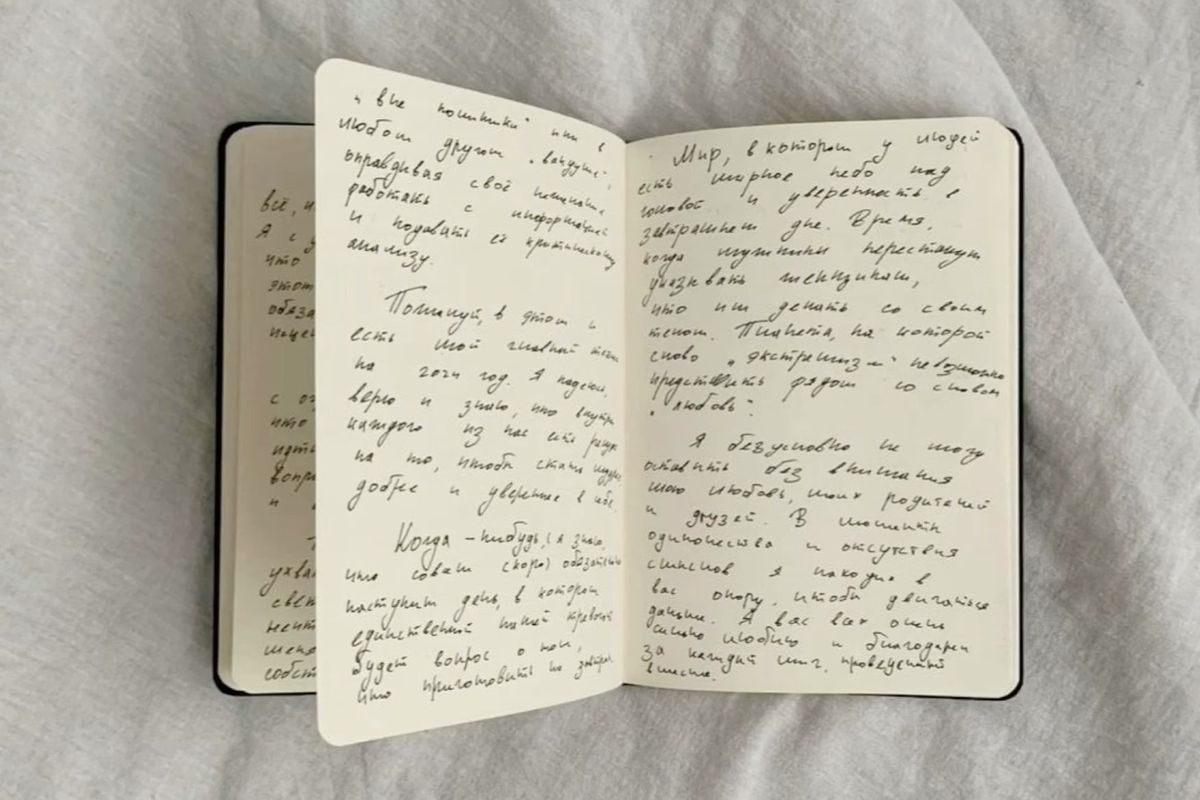 всё,
Я с
что
этот
обяза
с
что
идти
Вопр
и
ухва
свет
мент
мено
собст
и вне политики" или в
любом другом „вакууме",
оправдывая своё нежелание
работать с информацией
и подавать её критическому
анализу.
Пожалуй, в этом и
есть мой главный
на 2024 год. Я надеюсь,
верю и знаю, что внутри
каждого из нас есть ресурс
на то, чтобы стать мудрее,
добрее и увереннее в себе.
Когда-нибудь, (я знаю,
что совсем скоро) обязательно
наступит день, в котором
единственной нашей тревогой
будет вопрос о том,
что приготовить на завтрак.
Мир, в котором у людей
есть мирное небо над
головой и уверенность в
завтрашнем дне. Время,
когда мужчины перестанут
указывать женщинам,
что им делать со своим
телом. Планета, на которой
слово „экстремизм" невозможно
представить рядом со словом
„любовь".
Я безусловно не могу
оставить без внимания
мою любовь, моих родителей
и друзей. В моменты
одиночества и отсутствия
смыслов я находил в
вас опору, чтобы двигаться
дальше. Я вас всех очень
сильно люблю и благодарен
за каждый миг, проведенный
вместе.